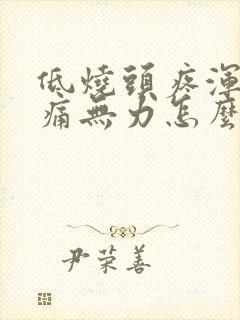 低燒頭疼渾
痛無力怎麼
尹荣善